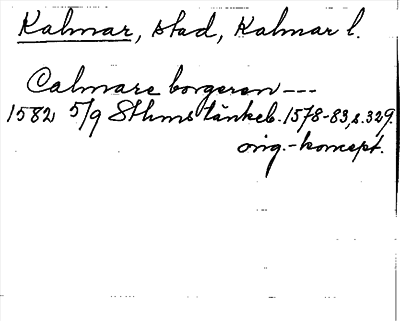 Kalmar, stad, Kalmar l.
Calmare borgeren ---
1582 5/9 Sthms tänkeb. 1578-83, s. 329.
orig.-koncept.